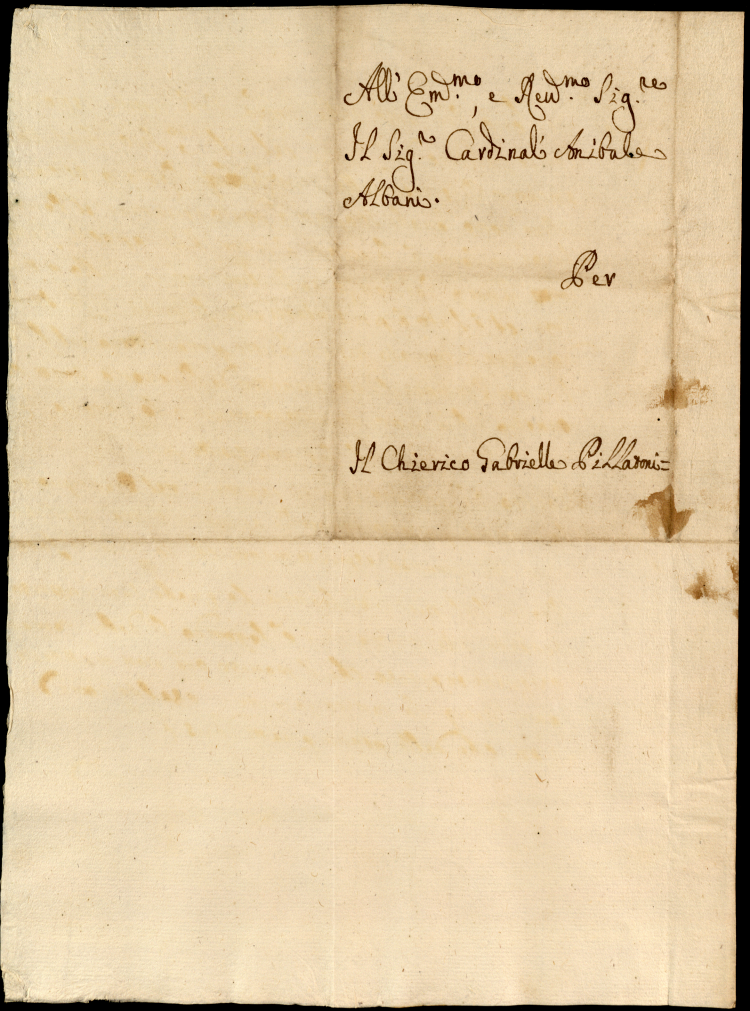 All' Em.mo, e Reu.mo Sig.re
Il Sig.r Cardinal' Anibale
Albani.
Per
Il Chierico Gabrielle Pillaroni=